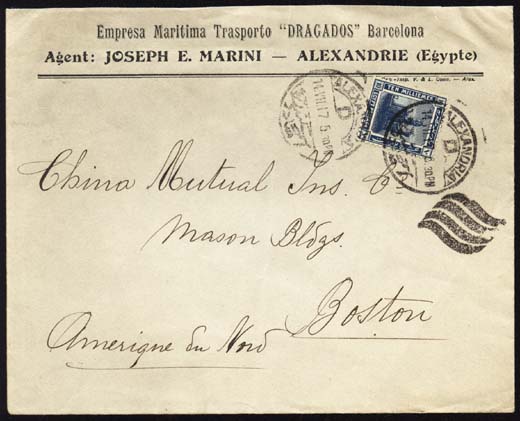 Empresa Maritima Trasporto "DRAGADOS" Barcelona
Agent: JOSEPH E. MARINI — ALEXANDRIE (Egypte)
TEN MILLIEMES
ALEXANDRIA
D
14.VII.17 5
PM
ALEXANDRIA
D
30PM
China Mutual Ins. Co
Mason Bldgs.
Boston
Amerique du Nord